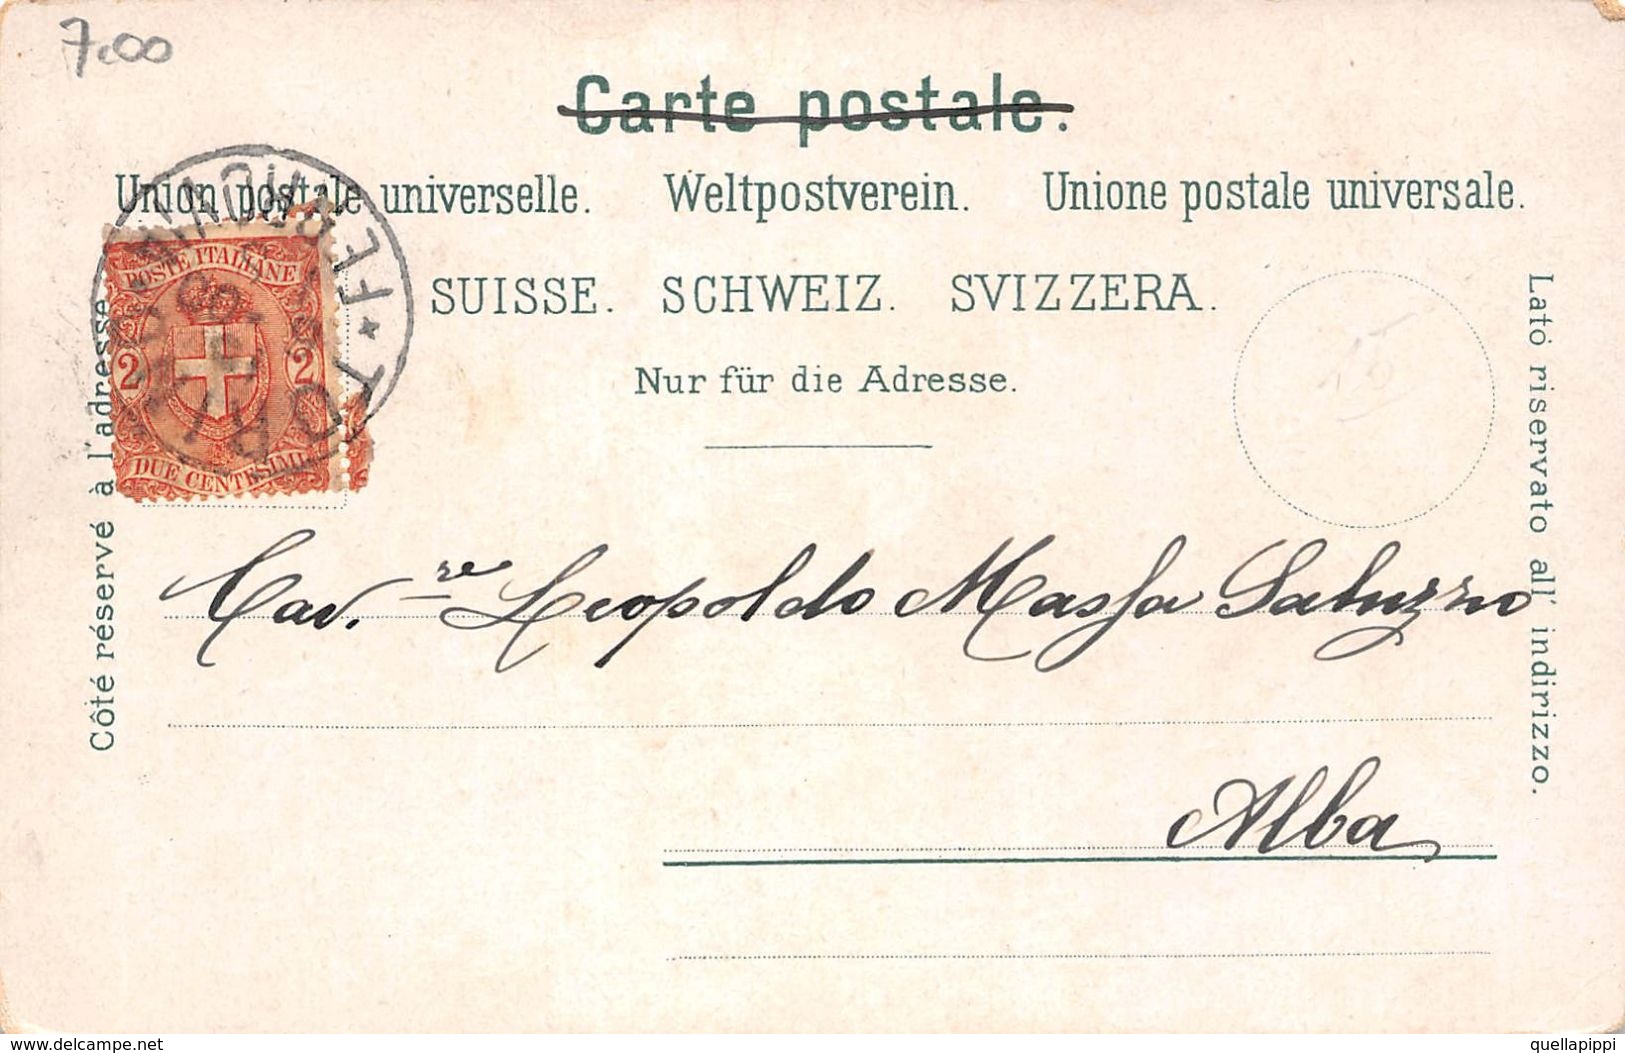 7.00
Carte postale.
Union postale universelle. Weltpostverein. Unione postale universale.
SUISSE. SCHWEIZ. SVIZZERA.
Nur für die Adresse.
POSTE ITALIANE
2 2
DUE CENTESIMI
Côté réservé à l'adresse.
Lato riservato all' indirizzo.
15
Cav.re Leopoldo Massa Saluzzo
Alba
delcampe.net
quellapippi